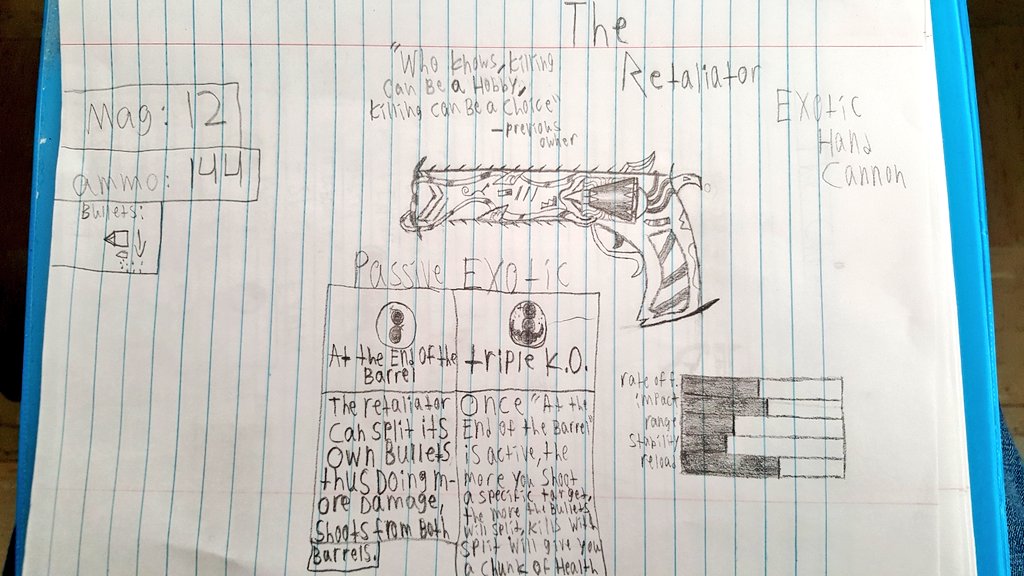 The
Retaliator
"Who knows, killing
Can Be a Hobby,
killing can Be a choice"
-previous
owner
Exotic
Hand
Cannon
Mag: 12
ammo: 144
Bullets:
Passive Exotic
At the End Of the
Barrel
triple K.O.
The retaliator
Can split its
Own Bullets
thus Doing m-
ore Damage,
Shoots from Both
Barrels.
Once "At the
End of the Barrel"
is active, the
more you shoot
a specific target,
the more the Bullets
will split, kills with
split will give you
a chunk of Health
rate of f.
impact
range
stability
reload